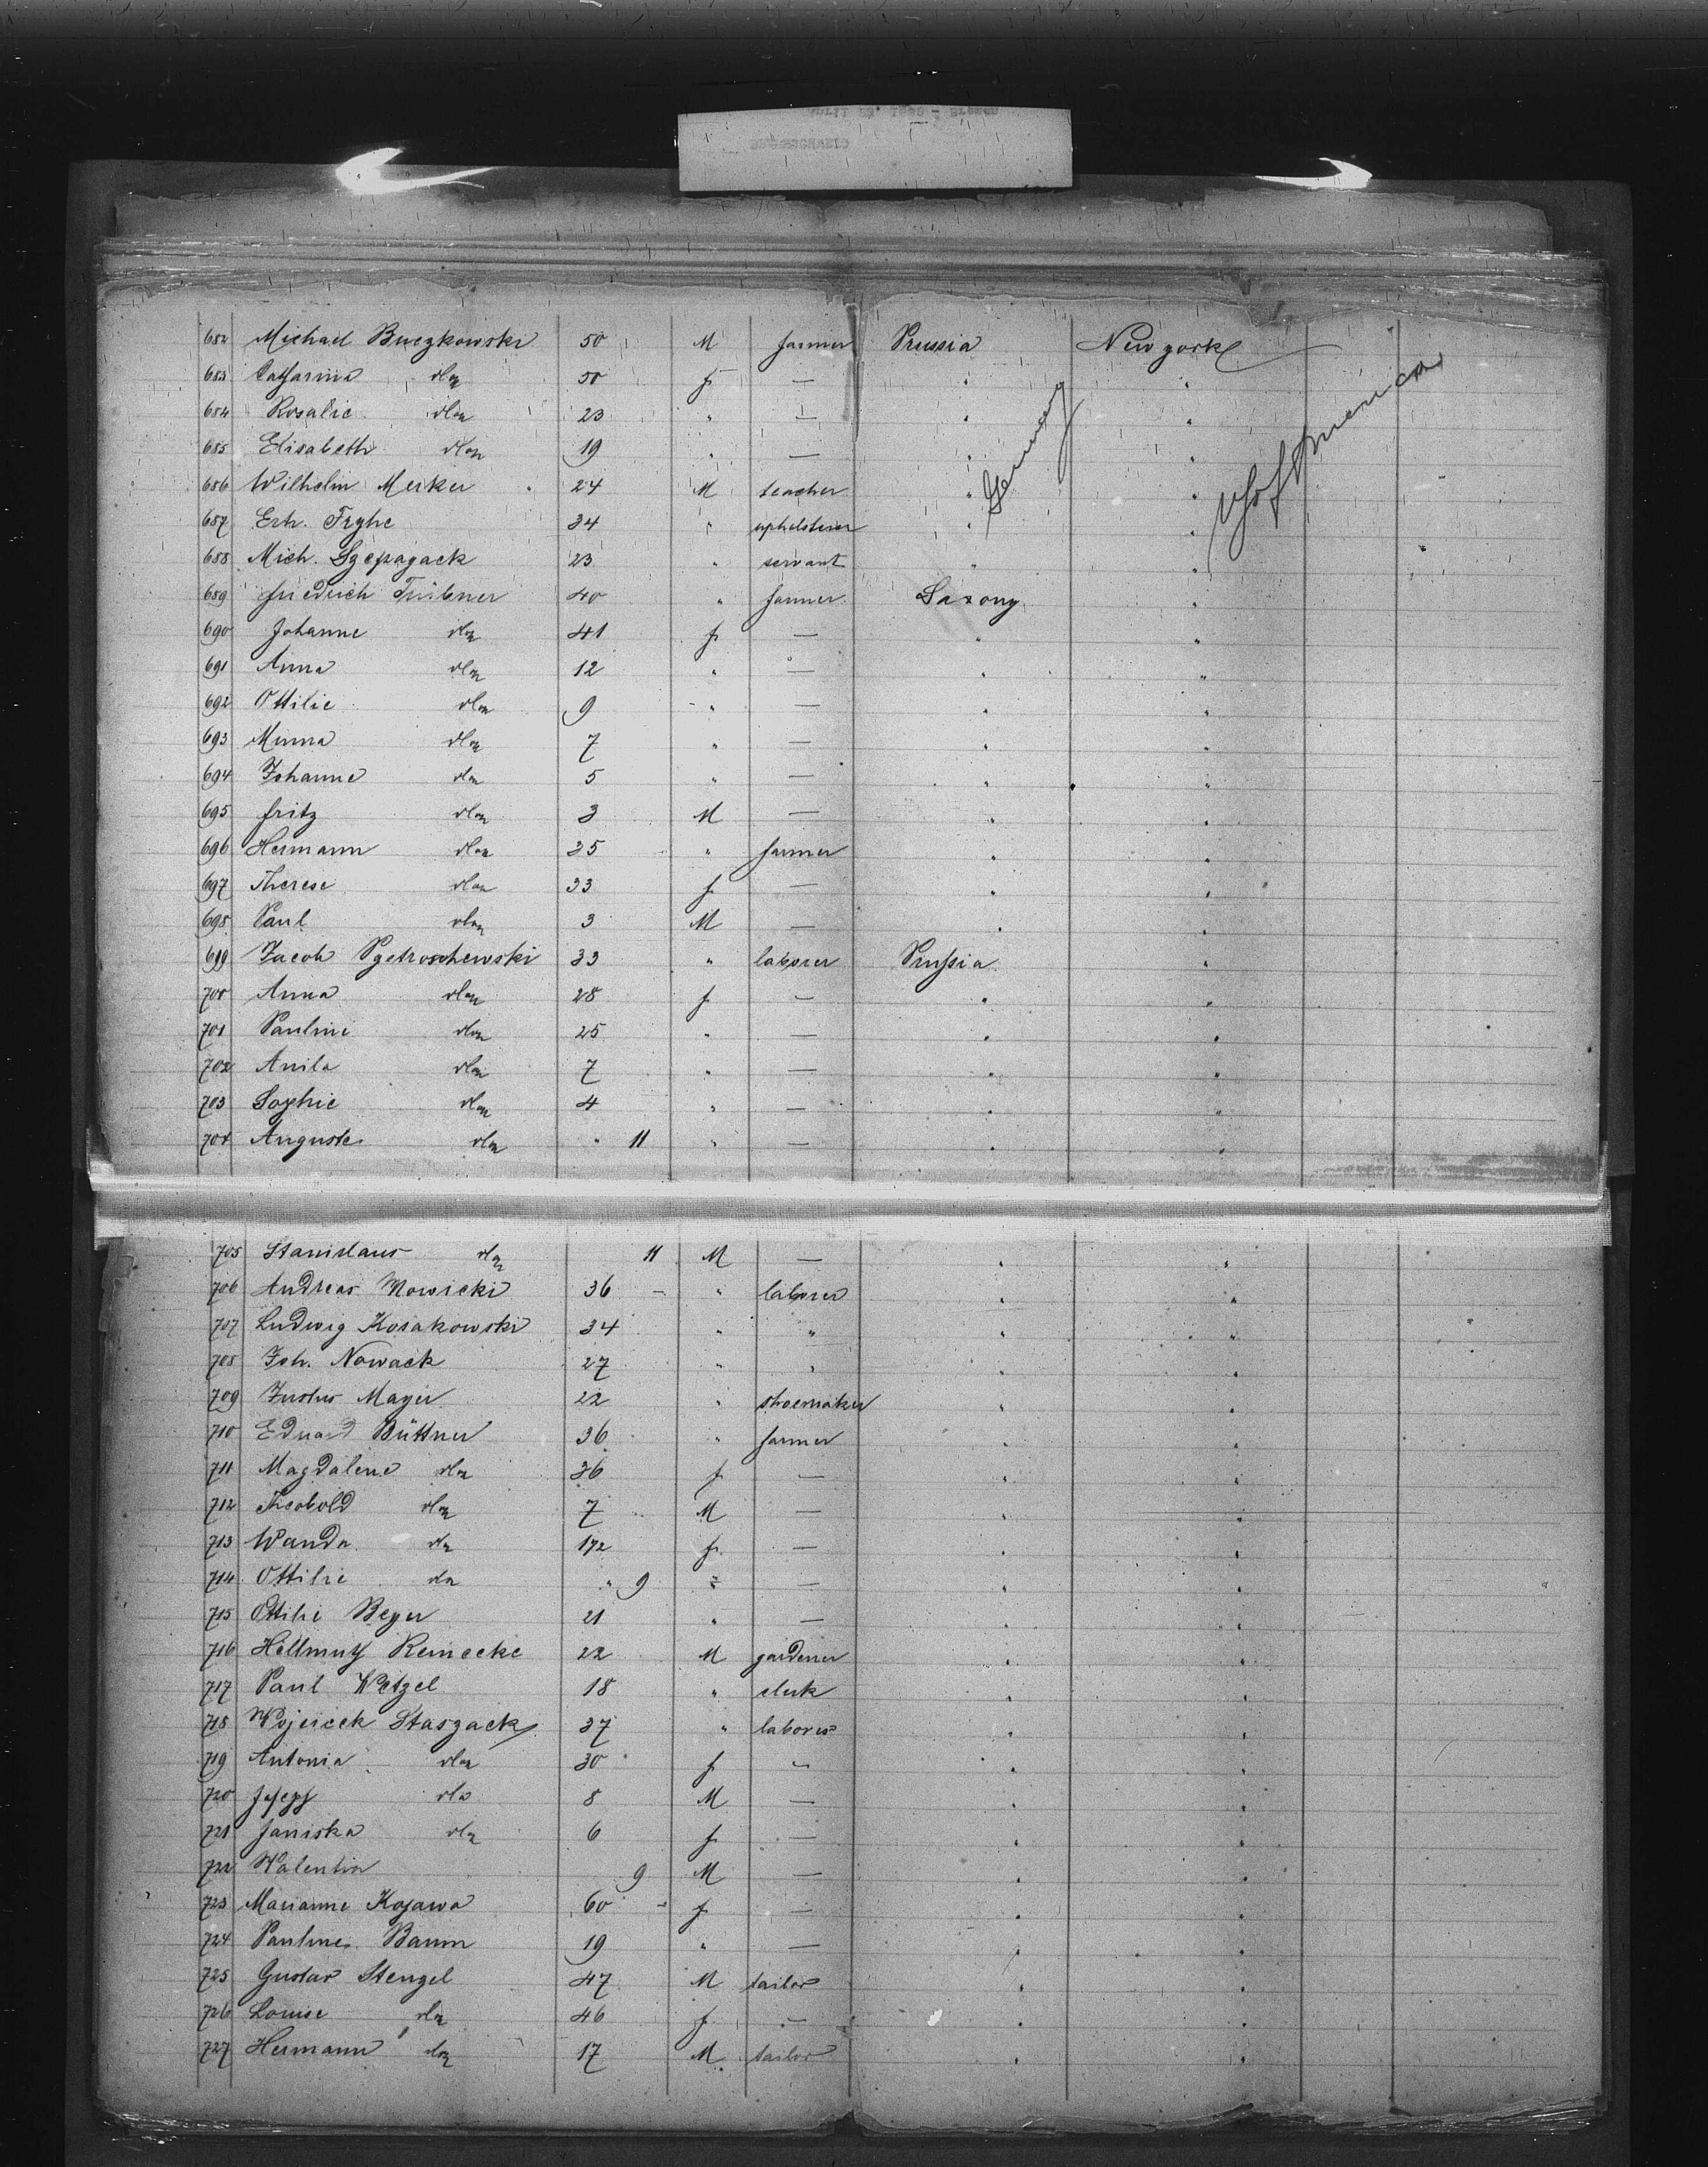 682 Michael Buczkowski 50 M farmer Prussia New york
683 Catharina do 50 f — " "
684 Rosalie do 23 " — " "
685 Elisabeth do 19 " — " "
686 Wilhelm Merker 24 M teacher " Germany "
687 Erh. Tryhe 34 " upholsterer " " US of America
688 Mich. Szepazack 23 " servant " "
689 Friedrich Trübner 40 " farmer Saxony "
690 Johanne do 41 f — " "
691 Anna do 12 " — " "
692 Ottilie do 9 " — " "
693 Minna do 7 " — " "
694 Johanne do 5 " — " "
695 Fritz do 3 M — " "
696 Hermann do 35 " farmer " "
697 Therese do 33 f — " "
698 Paul do 3 M — " "
699 Jacob Pyetroschewski 33 " laborer Prussia "
700 Anna do 28 f — " "
701 Pauline do 25 " — " "
702 Anila do 7 " — " "
703 Sophie do 4 " — " "
704 Auguste do " 11 " — " "
705 Stanislaus do 11 M — " "
706 Andreas Nowicki 36 " laborer " "
707 Ludwig Kosakowski 34 " " " "
708 Joh. Nowack 27 " " " "
709 Justus Mayer 22 " shoemaker " "
710 Eduard Büttner 36 " farmer " "
711 Magdalene do 36 f — " "
712 Theobold do 7 M — " "
713 Wanda do 1 1/2 f — " "
714 Ottilie do " 9 " — " "
715 Ottilie Beyer 21 " — " "
716 Hellmuth Reinecke 22 M gardener " "
717 Paul Wetzel 18 " clerk " "
718 Wojeicek Staszack 37 " laborer " "
719 Antonia do 30 f — " "
720 Joseph do 8 M — " "
721 Janiska do 6 f — " "
722 Valentin 9 M — " "
723 Marianne Kojawa 60 f — " "
724 Pauline Baum 19 " — " "
725 Gustav Stengel 47 M tailor " "
726 Louise do 46 f — " "
727 Hermann do 17 M tailor " "